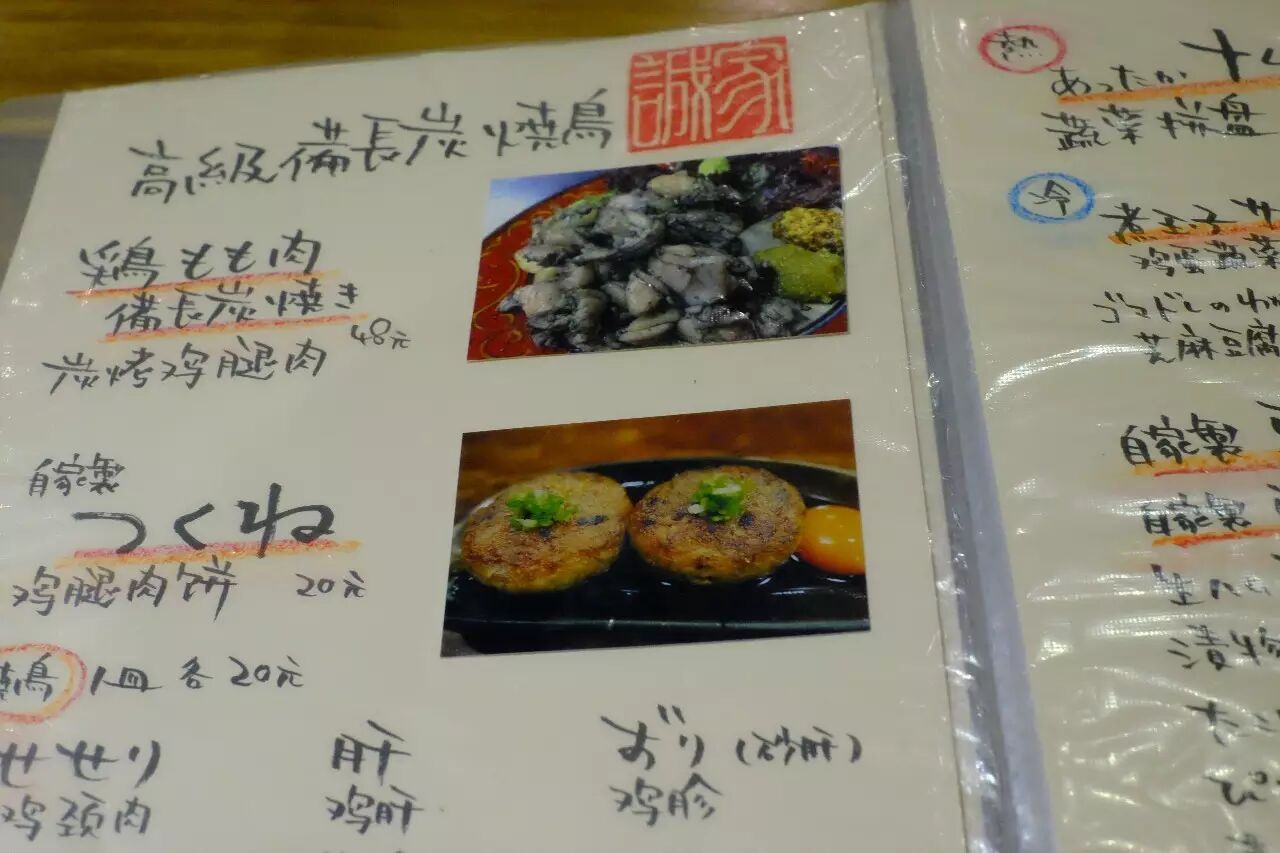 高級備長炭焼鳥
誠家
鶏もも肉
備長炭焼き
48元
炭烤鸡腿肉
自家製
つくね
鸡腿肉饼 20元
焼鳥 1皿 各20元
せせり
鸡颈肉
肝
鸡肝
ずり(砂肝)
鸡胗
热
あったか
蔬菜拼盘
冷
煮玉子サ
鸡蛋蔬菜
ゴマドレのわ
芝麻豆腐
自家製
自家製
漬物